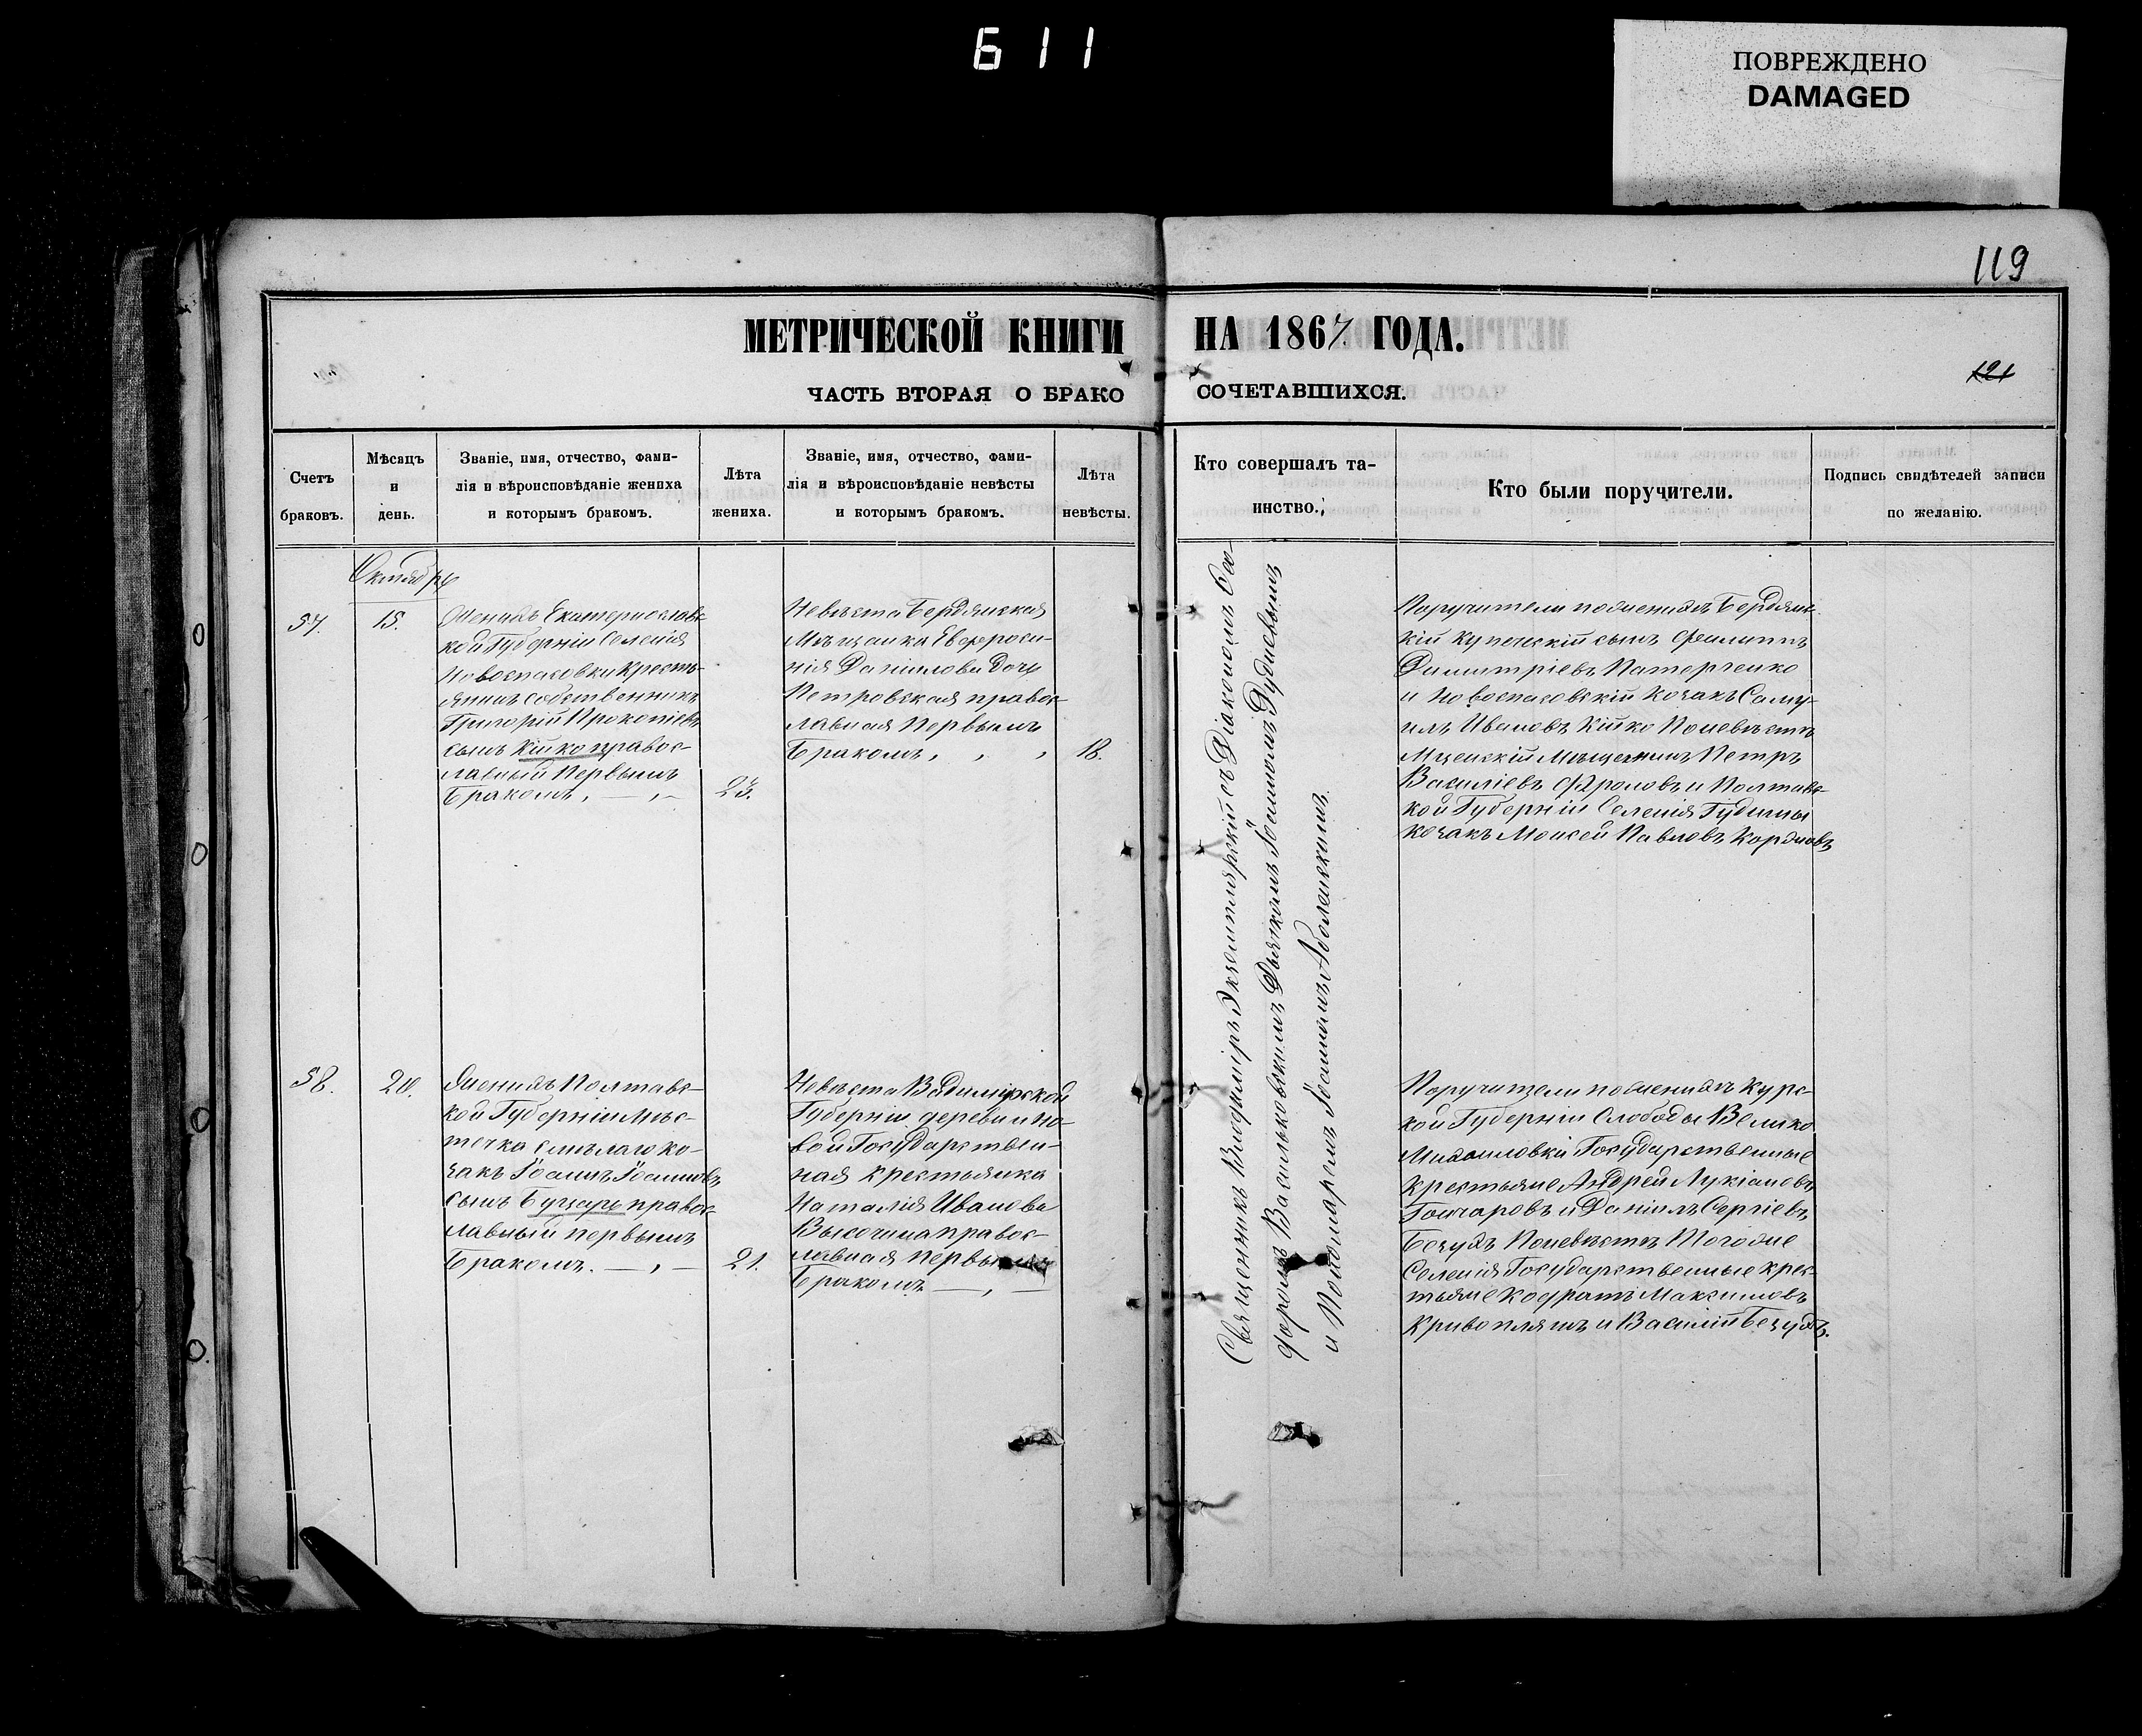 611
ПОВРЕЖДЕНО
DAMAGED
119
МЕТРИЧЕСКОЙ КНИГИ НА 1867 ГОДА.
121
ЧАСТЬ ВТОРАЯ О БРАКО СОЧЕТАВШИХСЯ.
Счетъ
браковъ.
Мѣсяцъ
и
день.
Званіе, имя, отчество, фами-
лія и вѣроисповѣданіе жениха
и которымъ бракомъ.
Лѣта
жениха.
Званіе, имя, отчество, фами-
лія и вѣроисповѣданіе невѣсты
и которымъ бракомъ.
Лѣта
невѣсты.
Кто совершалъ та-
инство.
Кто были поручители.
Подпись свидѣтелей записи
по желанію.
Октябрь
57.
15.
Женихъ Екатеринославс-
кой Губерніи Селенія
Новоспасовки Кресть-
янинъ собственникъ
Григорій Прокопіевъ
сынъ Кійко правос-
лавный Первымъ
Бракомъ, — , —
23.
Невѣста Бердянская
Мѣщанка Евфроси-
нія Даніилова Дочь
Петровская правос-
лавная Первымъ
Бракомъ, , ,
18.
Поручители по женихѣ Бердянс-
кій Купеческій сынъ Филиппъ
Димитріевъ Патерченко
и Новоспасовскій Козакъ Саму-
илъ Ивановъ Кійко По невѣстѣ
Мценскій Мѣщанинъ Петръ
Василіевъ Фроловъ и Полтавс-
кой Губерніи Селенія
козакъ Моисей Павловъ
58.
20.
Женихъ Полтавс-
кой Губерніи Мѣс-
течка Смѣлаго ко-
закъ Іоаннъ Іоанновъ
сынъ Буцарь правос-
лавный первымъ
Бракомъ. — , —
21.
Невѣста
Губерніи деревни Но-
вой Государствен-
ная крестьянка
Наталія Иванова
Высочина правос-
лавная первымъ
Бракомъ — , —
Поручители по женихѣ Курс-
кой Губерніи Слободы Велико
Михаиловки Государственные
крестьяне Андрей Лукіановъ
Гончаровъ и Даніилъ Сергіевъ
По невѣстѣ Того же
Селенія Государственные крес-
тьяне Кодратъ Максимовъ
и Василій
Священникъ Владиміръ Экземплярскій съ Діакономъ
Васильковскимъ Дьячкомъ Іоанномъ
и Пономаремъ Іоанномъ